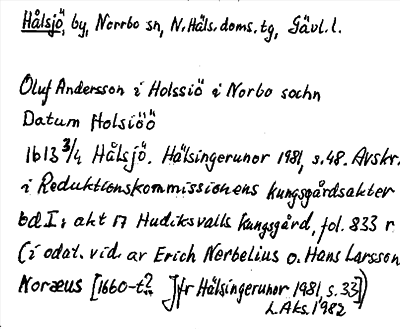 Hålsjö, by, Norrbo sn, N. Häls. doms. tg, Gävl. l.
Oluf Andersson i Holssiö i Norbo sochn
Datum Holsiöö
1613 3/4 Hålsjö. Hälsingerunor 1981, s. 48. Avskr.
i Reduktionskommissionens kungsgårdsakter
bd I, akt 17 Hudiksvalls kungsgård, fol. 833 r
(i odat. vid. av Erich Nerbelius o. Hans Larsson
Noræus [1660-t? Jfr Hälsingerunor 1981, s. 33])
L. Aks. 1982